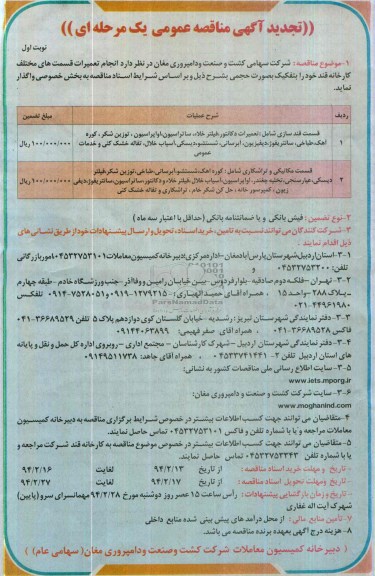 ((تجدید آگهی مناقصه عمومی یک مرحله ای))
نوبت اول
۱-موضوع مناقصه: شرکت سهامی کشت و صنعت ودامپروری مغان در نظر دارد انجام تعمیرات قسمت های مختلف
کارخانه قند خود را بتفکیک بصورت حجمی بشرح ذیل و بر اساس شرایط اسناد مناقصه به بخش خصوصی واگذار
نماید.
ردیف شرح عملیات مبلغ تضمین
۱ قسمت قند سازی شامل: تعمیرات دکانتور، فیلتر خلاء، ساتراسیون، اواپراسیون، توزین شکر، کوره
آهک، طباخی، سانتریفوژ، دیفیزیون، آبرسانی، شستشو، دیسکی، آسیاب خلال، تفاله خشک کنی و خدمات
عمومی ۱۰۰/۰۰۰/۰۰۰ ریال
۲ قسمت مکانیکی و تراشکاری شامل: کوره آهک، شستشو، آبرسانی، طباخی، توزین شکر، فیلتر
دیسکی، عیارسنجی، تخلیه چغندر، اواپراسیون، آسیاب خلال، فیلتر خلاء ودکانتور، ساتراسیون، سانتریفوژ، دیفی
زیون، کمپرسور خانه، حل کن شکر خام، تراشکاری و تفاله خشک کنی ۱۰۰/۰۰۰/۰۰۰ ریال
۲-نوع تضمین: فیش بانکی و یا ضمانتنامه بانکی (حداقل با اعتبار سه ماه)
۳-شرکت کنندگان می توانند نسبت به تامین، خرید اسناد، تحویل و ارسال پیشنهادات خود از طریق نشانی های
ذیل اقدام نمایند.
۳-۱-استان اردبیل شهرستان پارس آباد مغان-اداره مرکزی؛ دبیرخانه کمیسیون معاملات ۰۴۵۳۲۷۵۳۱۰۱ امور بازرگانی
تلفن: ۰۴۵۳۲۷۵۳۲۰۰ و
۳-۲- تهران-فلکه دوم صادقیه -بلوار فردوس-بین خیابان رامین ووفاآذر -جنب ورزشگاه خادم -طبقه چهارم
-پلاک ۲۸۸-واحد ۱۵ ، همراه آقای حمید الهیاری: ۰۹۱۹-۱۲۷۹۲۱۵ و ۰۹۱۴-۷۵۲۸۰۵۱ تلفکس
۰۲۱-۴۴۹۶۱۹۸۰
۳-۳-دفتر نمایندگی شهرستان تبریز: رشدیه خیابان گلستان کوی دوازدهم پلاک ۵ تلفن ۳۶۶۸۹۵۳۹-۰۴۱
فاکس ۳۶۶۸۹۵۲۸-۰۴۱ ، همراه آقای صفر فهیمی: ۰۹۱۴۴۰۶۳۸۹۹
۳-۴-دفتر نمایندگی شهرستان اردبیل -شهرک کارشناسان - مجتمع اداری - روبروی اداره کل حمل و نقل و پایانه
های استان اردبیل تلفن ۲- ۰۴۵۳۳۷۴۱۴۴۱ ، همراه آقای جاهد: ۰۹۱۴۹۵۱۱۷۳۸
۳-۵- سایت اطلاع رسانی ملی مناقصات کشور به نشانی:
www.iets.mporg.ir
۳-۶- سایت شرکت کشت و صنعت و دامپروری مغان:
www.moghanind.com
۴-متقاضیان می توانند جهت کسب اطلاعات بیشتر در خصوص شرایط برگزاری مناقصه به دبیرخانه کمیسیون
معاملات مراجعه و یا با شماره تلفن و فاکس ۰۴۵۳۲۷۵۳۱۰۱ تماس حاصل نمایند.
۵-متقاضیان می توانند جهت کسب اطلاعات بیشتر در خصوص موضوع مناقصه به کارخانه قند شرکت مراجعه و
یا با شماره تلفن ۰۴۵۳۲۷۵۳۳۴۳ تماس حاصل نمایند.
- تاریخ و مهلت خرید اسناد مناقصه: از تاریخ ۹۴/۲/۱۳ لغایت ۹۴/۲/۱۶
- تاریخ و مهلت تحویل اسناد مناقصه: از تاریخ ۹۴/۲/۱۷ لغایت ۹۴/۲/۲۷
- تاریخ و زمان بازگشایی پیشنهادات: رأس ساعت ۱۵ عصر روز دوشنبه مورخ ۹۴/۲/۲۸ مهمانسرای سرو (پایین)
شهرک آیت اله غفاری
۷-تأمین منابع مالی: از محل درآمد های پیش بینی شده منابع داخلی
۸-هزینه درج آگهی بعهده برنده مناقصه می باشد.
(دبیر خانه کمیسیون معاملات شرکت کشت و صنعت و دامپروری مغان (سهامی عام))